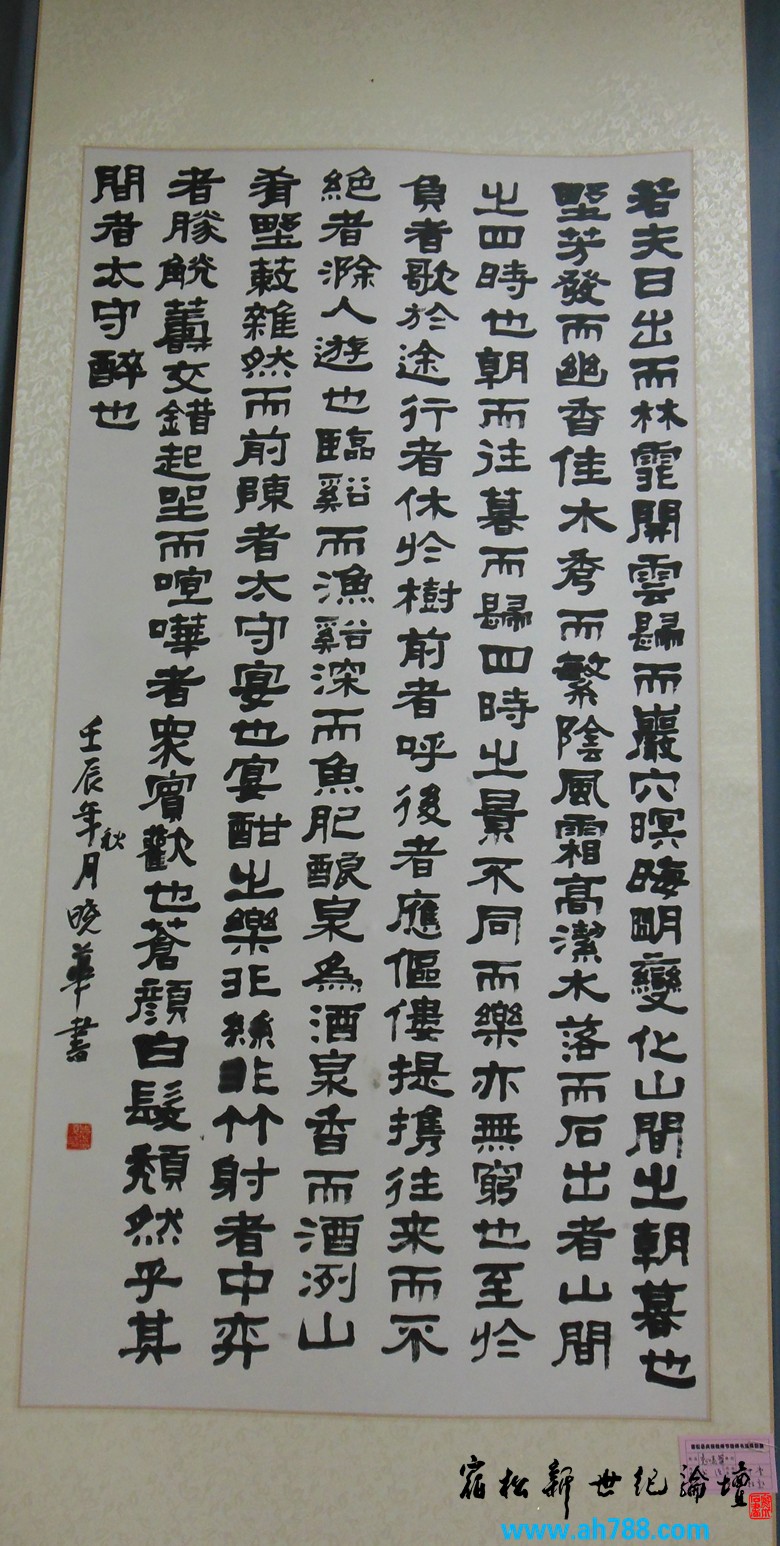 若夫日出而林霏開雲歸而巖穴暝晦明變化山間之朝暮也
野芳發而幽香佳木秀而繁陰風霜高潔水落而石出者山間
之四時也朝而往暮而歸四時之景不同而樂亦無窮也至於
負者歌於途行者休於樹前者呼後者應傴僂提攜往来而不
絶者滁人遊也臨谿而漁谿深而魚肥酿泉為酒泉香而酒洌山
肴野蔌雜然而前陳者太守宴也宴酣之樂非絲非竹射者中弈
者勝觥籌交錯起坐而喧嘩者衆賓歡也蒼顏白髮頹然乎其
間者太守醉也
壬辰年秋月曉華書
宿松新世纪論壇
www.ah788.com